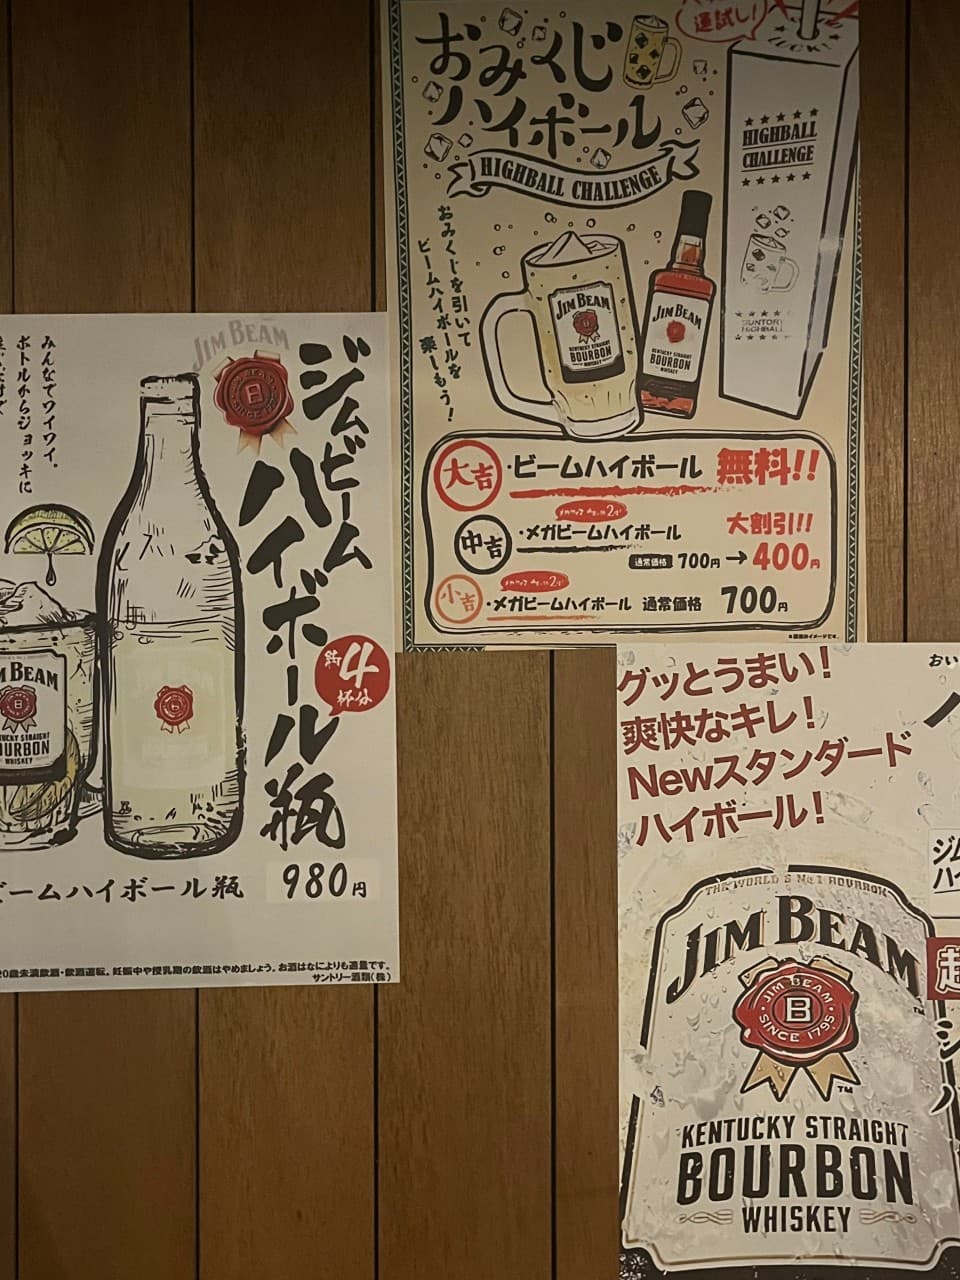 おみくじ
ハイボール
HIGHBALL CHALLENGE
運試し!
LUCK!
HIGHBALL
CHALLENGE
SUNTORY
HIGHBALL
おみくじを引いて
ビームハイボールを
楽しもう!
JIM BEAM
KENTUCKY STRAIGHT
BOURBON
WHISKEY
JIM BEAM
KENTUCKY STRAIGHT
BOURBON
WHISKEY
大吉・ビームハイボール 無料!!
中吉・メガビームハイボール 大割引!!
通常価格 700円→400円
小吉・メガビームハイボール 通常価格 700円
みんなでワイワイ。
ボトルからジョッキに
JIM BEAM
B
SINCE 1795
ジムビーム
ハイボール瓶
約4杯分
M BEAM
KENTUCKY STRAIGHT
OURBON
WHISKEY
ビームハイボール瓶 980円
20歳未満飲酒・飲酒運転。妊娠中や授乳期の飲酒はやめましょう。お酒はなによりも適量です。
サントリー酒類(株)
グッとうまい!
爽快なキレ!
Newスタンダード
ハイボール!
おい
ハ
ジム
ハイ
超
THE WORLD'S No.1 BOURBON
JIM BEAM
JIM BEAM
B
SINCE 1795
TM
KENTUCKY STRAIGHT
BOURBON
WHISKEY